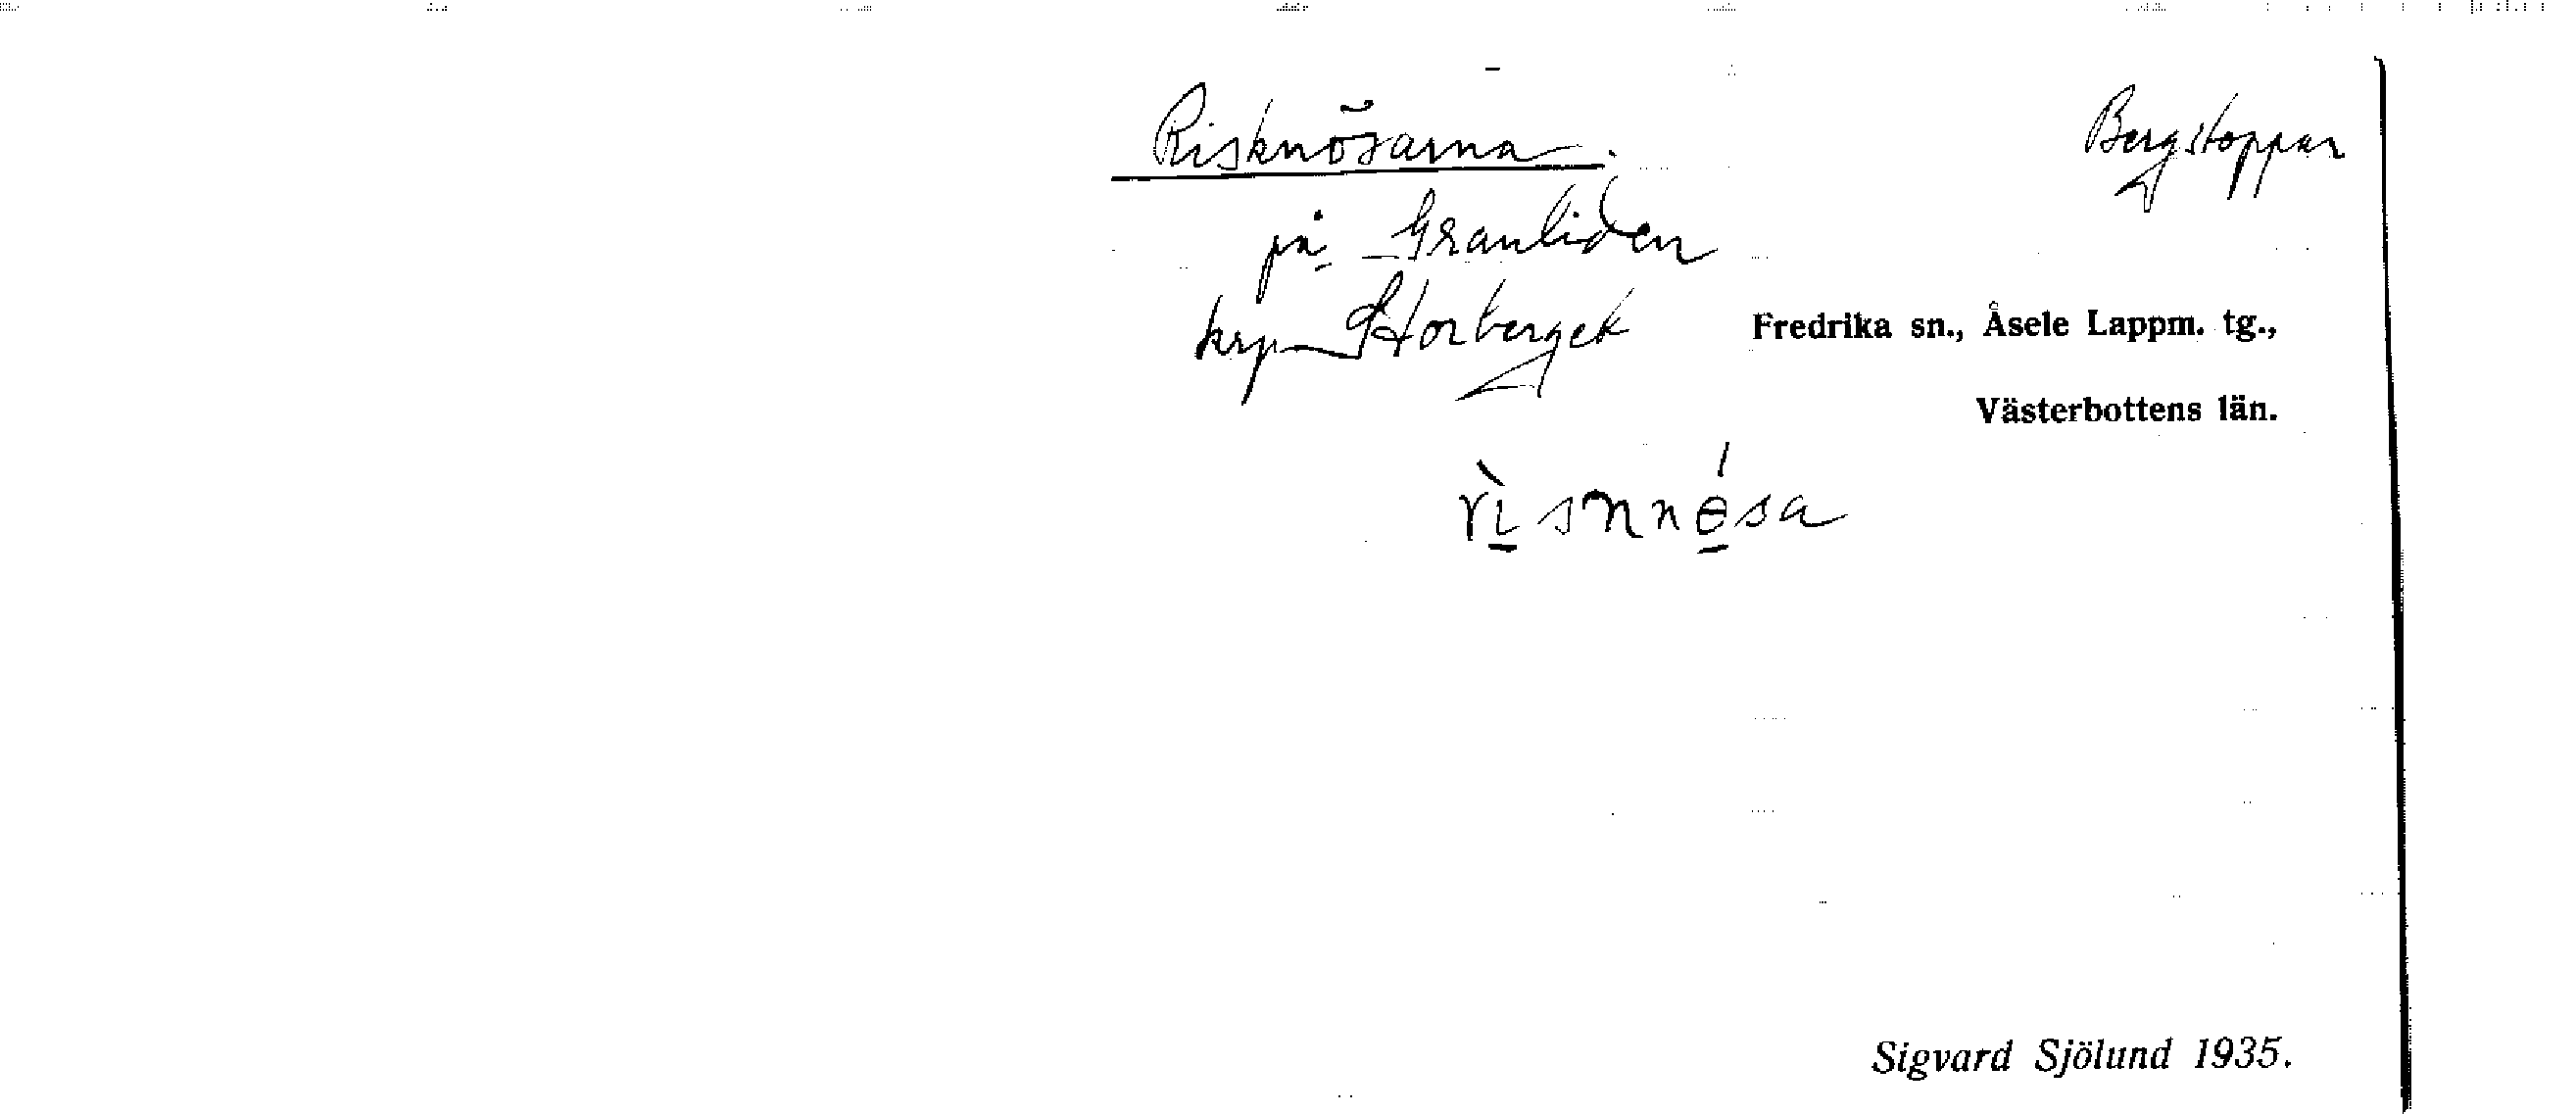 Risknösarna.
Bergstoppar
på Granliden
krp Storberget
Fredrika sn., Åsele Lappm. tg.,
Västerbottens län.
Sigvard Sjölund 1935.